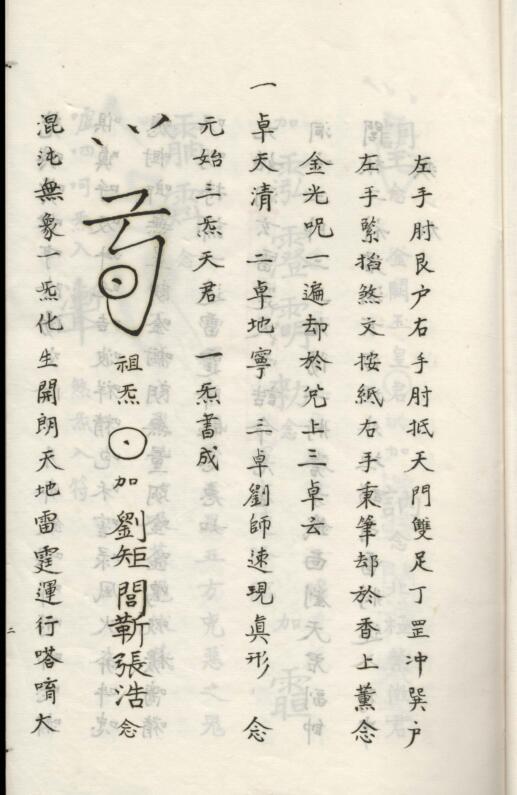 左手肘艮户右手肘抵天門雙足丁罡冲巽户
左手緊掐煞文按紙右手秉筆却於香上薰念
金光呪一遍却於凳上三卓云
一卓天清二卓地寧三卓劉師速現眞形 念
元始三炁天君一炁書成
祖炁 加劉矩閻靳張浩念
混沌無象一炁化生開朗天地雷霆運行嗒嚌大
二